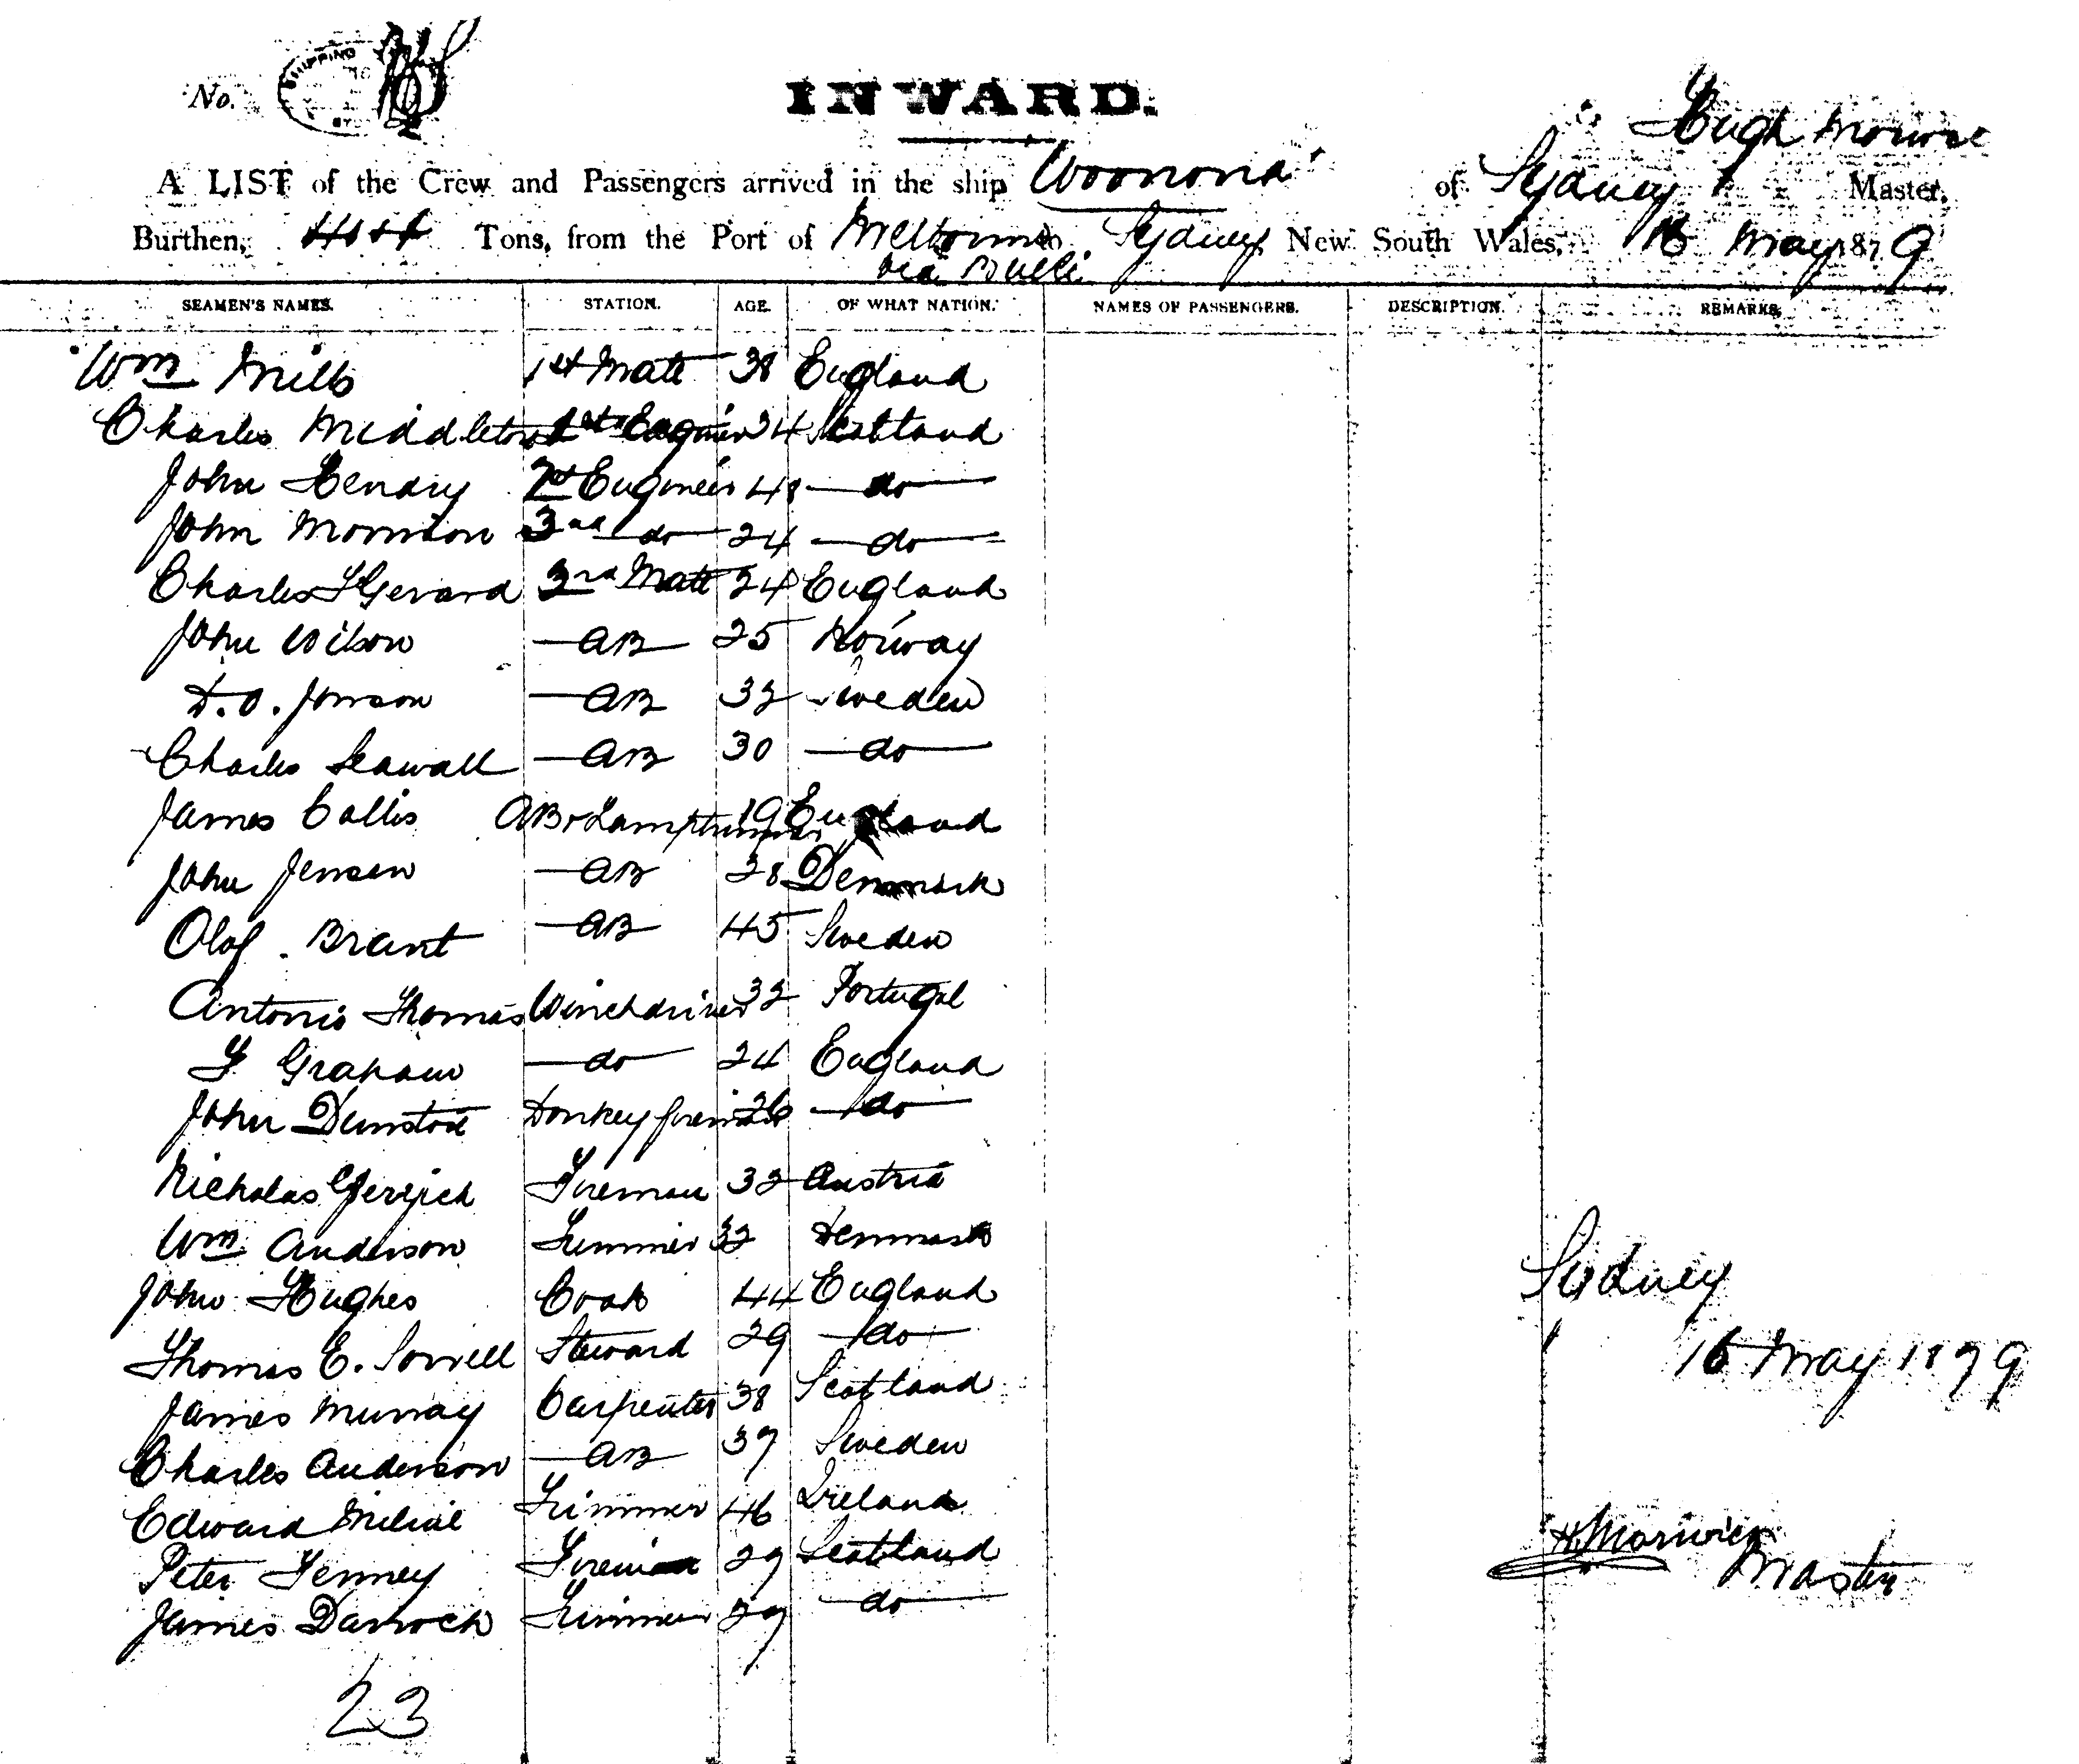 No. SHIPPING
INWARD.
Hugh
A LIST of the Crew and Passengers arrived in the ship Woonona of Sydney Master,
Burthen, Tons, from the Port of Melbourne to Sydney New South Wales, 16 May 1879
via Bulli
SEAMEN'S NAMES. STATION. AGE. OF WHAT NATION. NAMES OF PASSENGERS. DESCRIPTION. REMARKS.
Wm Mills 1st Mate 38 England
Charles Middleton 1st Engineer 34 Scotland
John Hendry 2nd Engineer 48 do
John Morrison 3rd do 24 do
Charles Gerard 2nd Mate 24 England
John Wilson AB 25 Norway
D. O. Jonson AB 32 Sweden
Charles Seawall AB 30 do
James Collis AB & Lamptrimmer 19 England
John Jensen AB 28 Denmark
Olof Brant AB 45 Sweden
Antonio Thomas Winchdriver 32 Portugal
G Graham do 24 England
John Dunston Donkey fireman 26 do
Nicholas Fireman 32 Austria
Wm Anderson Trimmer 32 Denmark
John Hughes Cook 44 England
Thomas E. Sorrell Steward 29 do
James Murray Carpenter 38 Scotland
Charles Anderson AB 37 Sweden
Edward Trimmer 46 Ireland
Peter Fenney Fireman 29 Scotland
James Darroch Trimmer 29 do
23
Sydney
16 May 1879
H. Morwick
Master